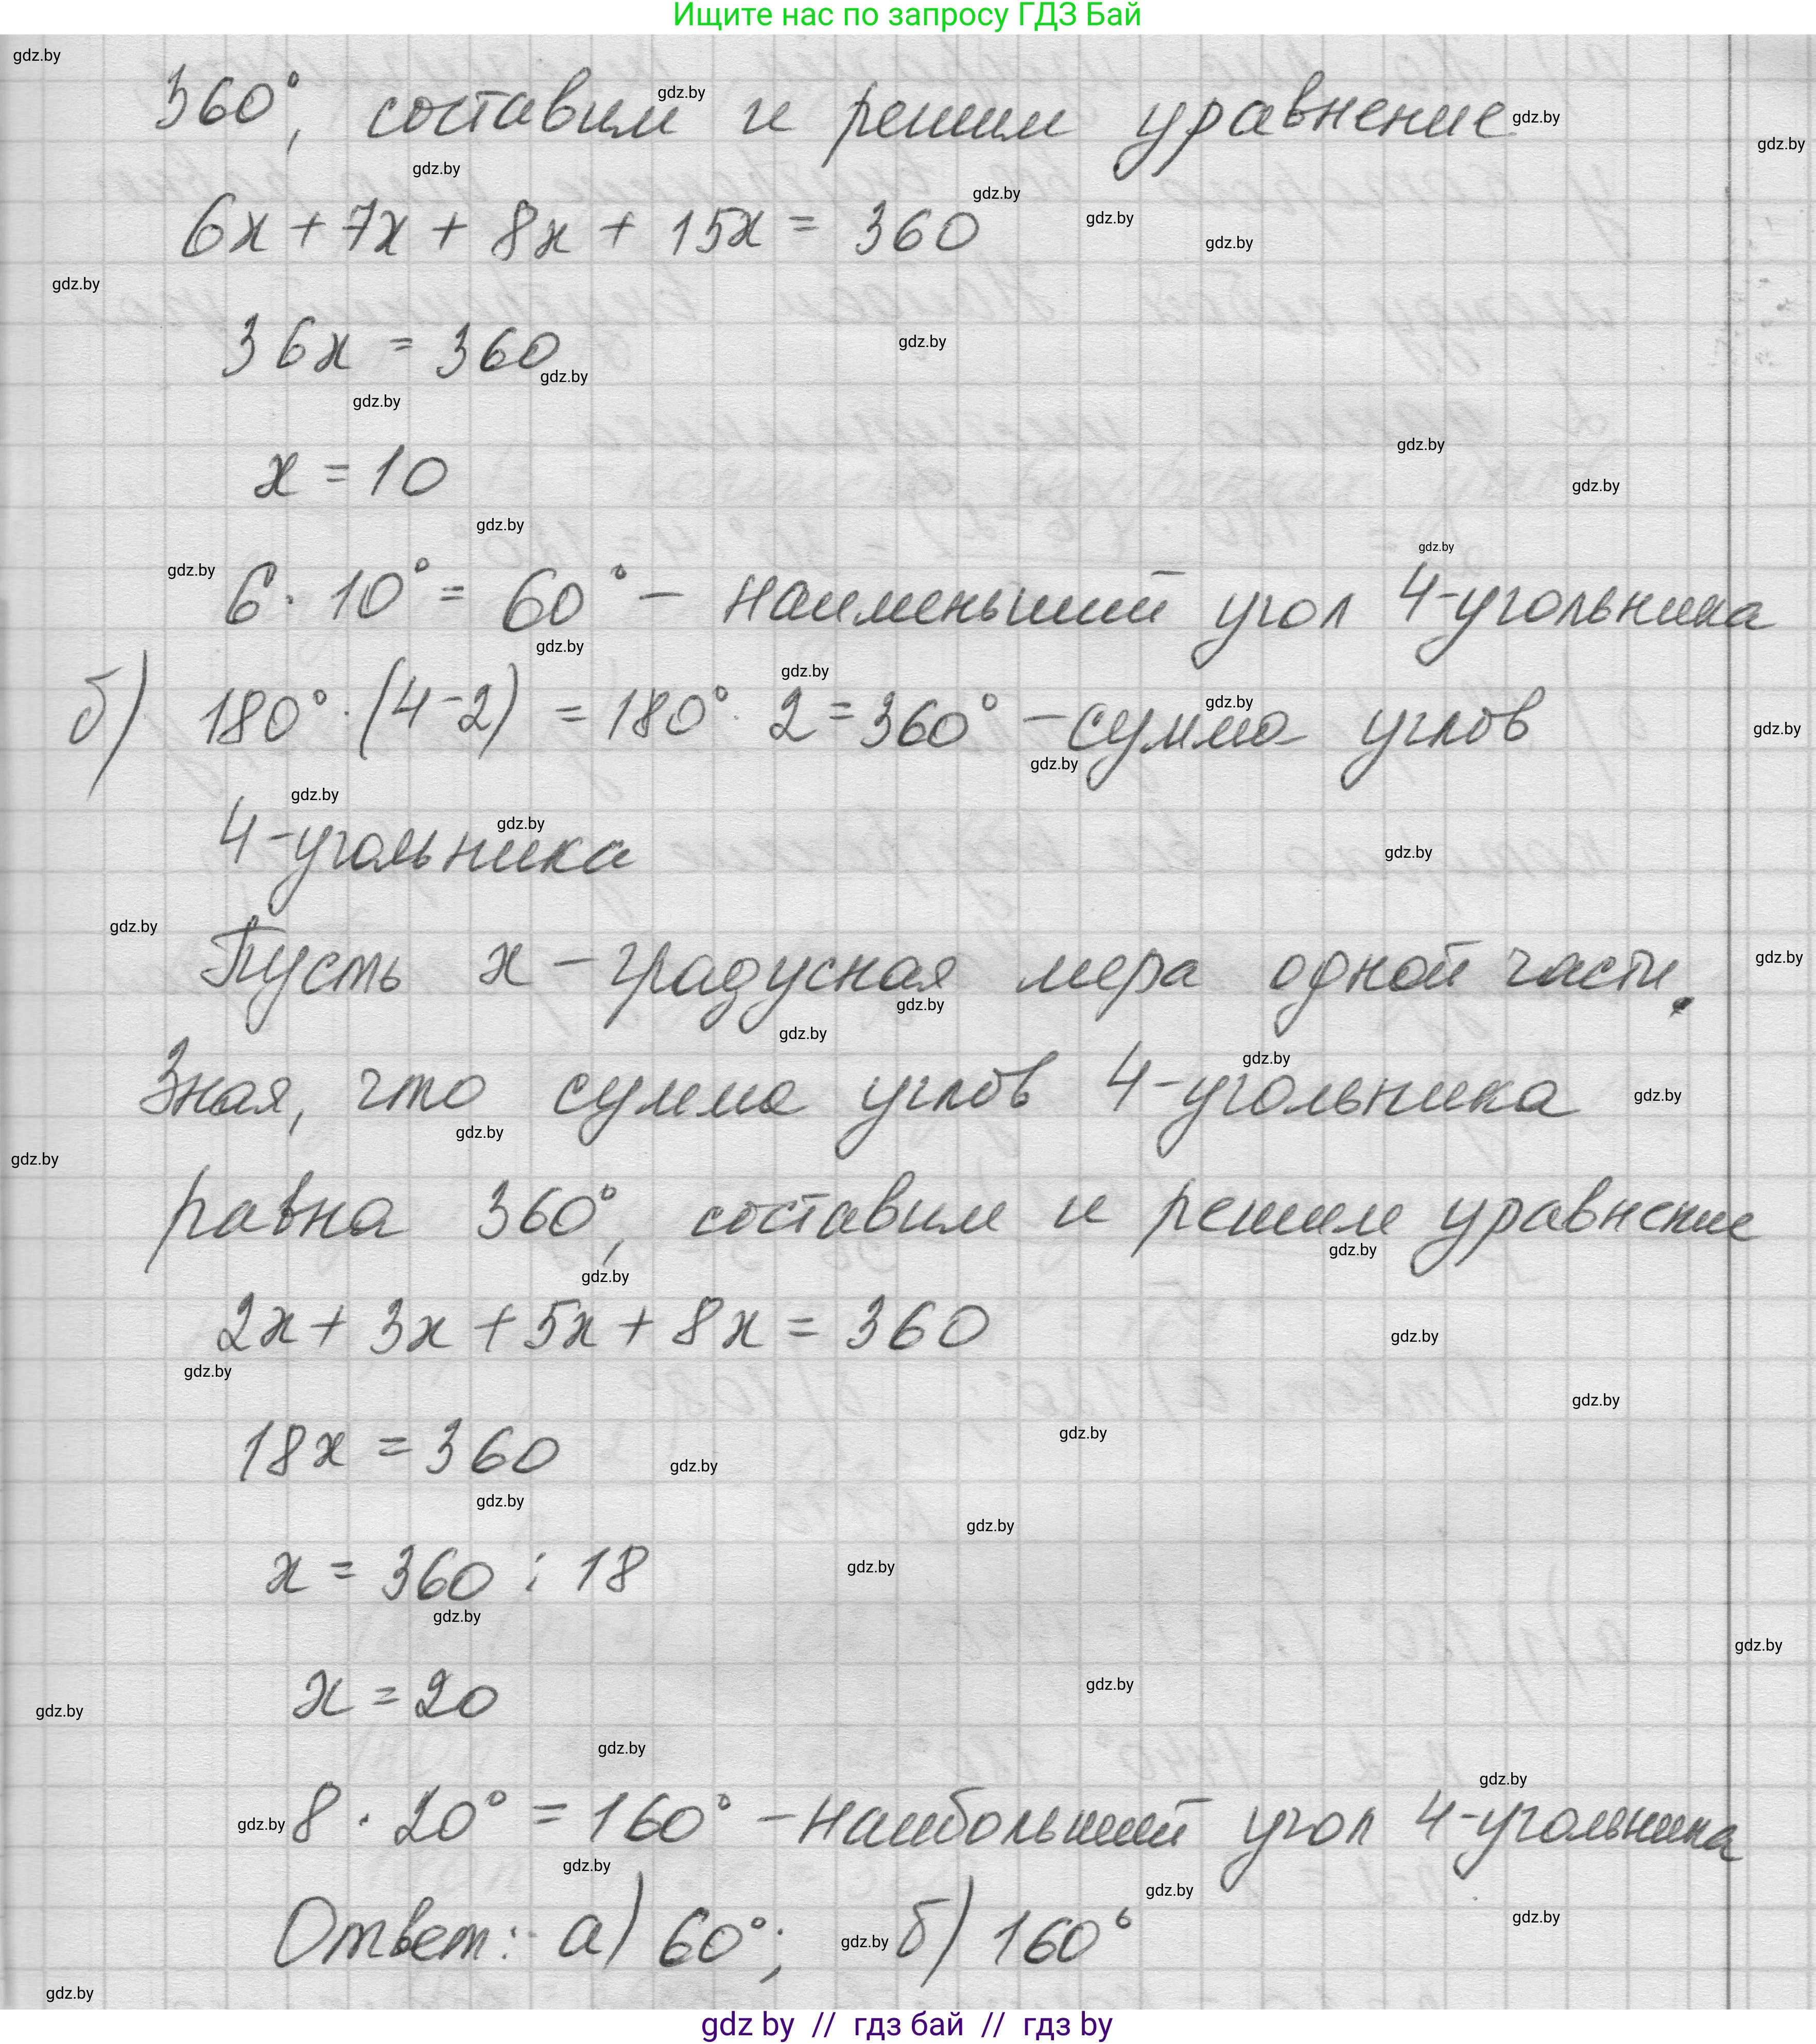 Ищите нас по запросу ГДЗ Бай
360°, составим и решим уравнение.
6x + 7x + 8x + 15x = 360
36x = 360
x = 10
6 · 10° = 60° – наименьший угол 4-угольника
б) 180° · (4-2) = 180° · 2 = 360° – сумма углов
4-угольника
Пусть x – градусная мера одной части.
Зная, что сумма углов 4-угольника
равна 360°, составим и решим уравнение
2x + 3x + 5x + 8x = 360
18x = 360
x = 360 : 18
x = 20
8 · 20° = 160° – наибольший угол 4-угольника
Ответ: а) 60°; б) 160°
gdz by // гдз бай // гдз by